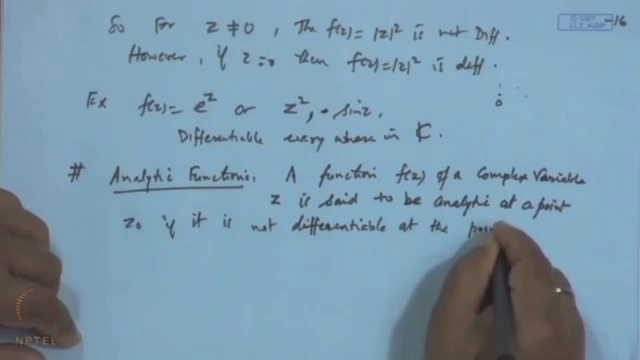 So For z ≠ 0, The f(z) = |z|² is not Diff.
However, if z = 0 then f(z) = |z|² is diff.
Ex f(z) = e^z or z², sin z,
Differentiable every where in ℂ.
# Analytic Function: A function f(z) of a complex variable
z is said to be analytic at a point
z₀ if it is not differentiable at the poin
© CET
I.I.T. KGP
-16
NPTEL